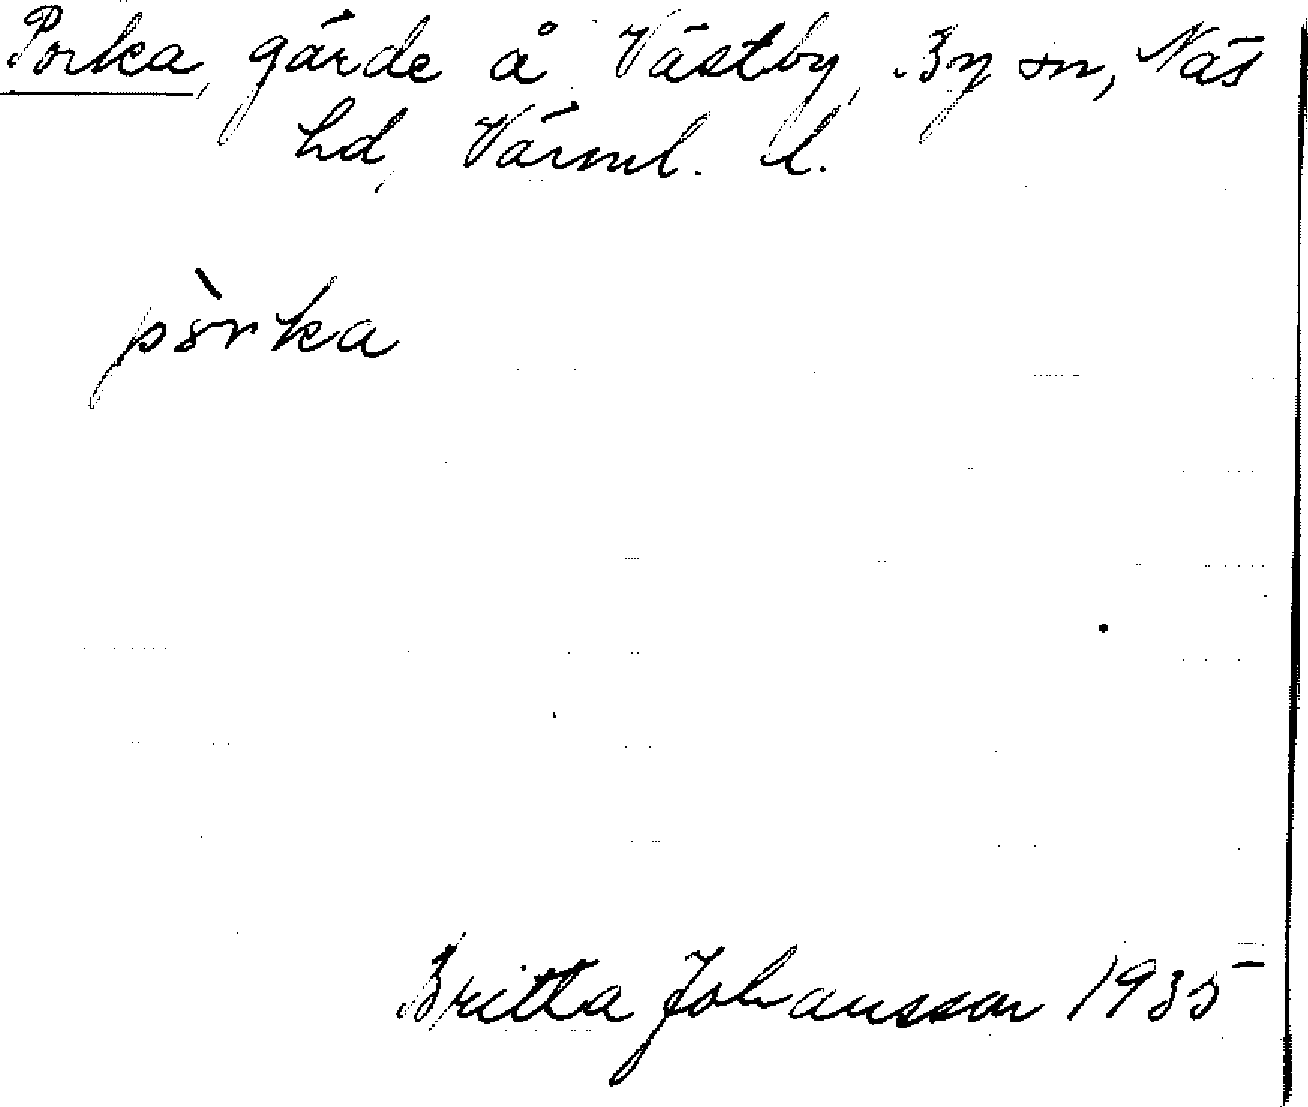 Porka, gärde å Västby, By sn, Näs
hd, Värml. l.
pòrka
Britta Johansson 1935